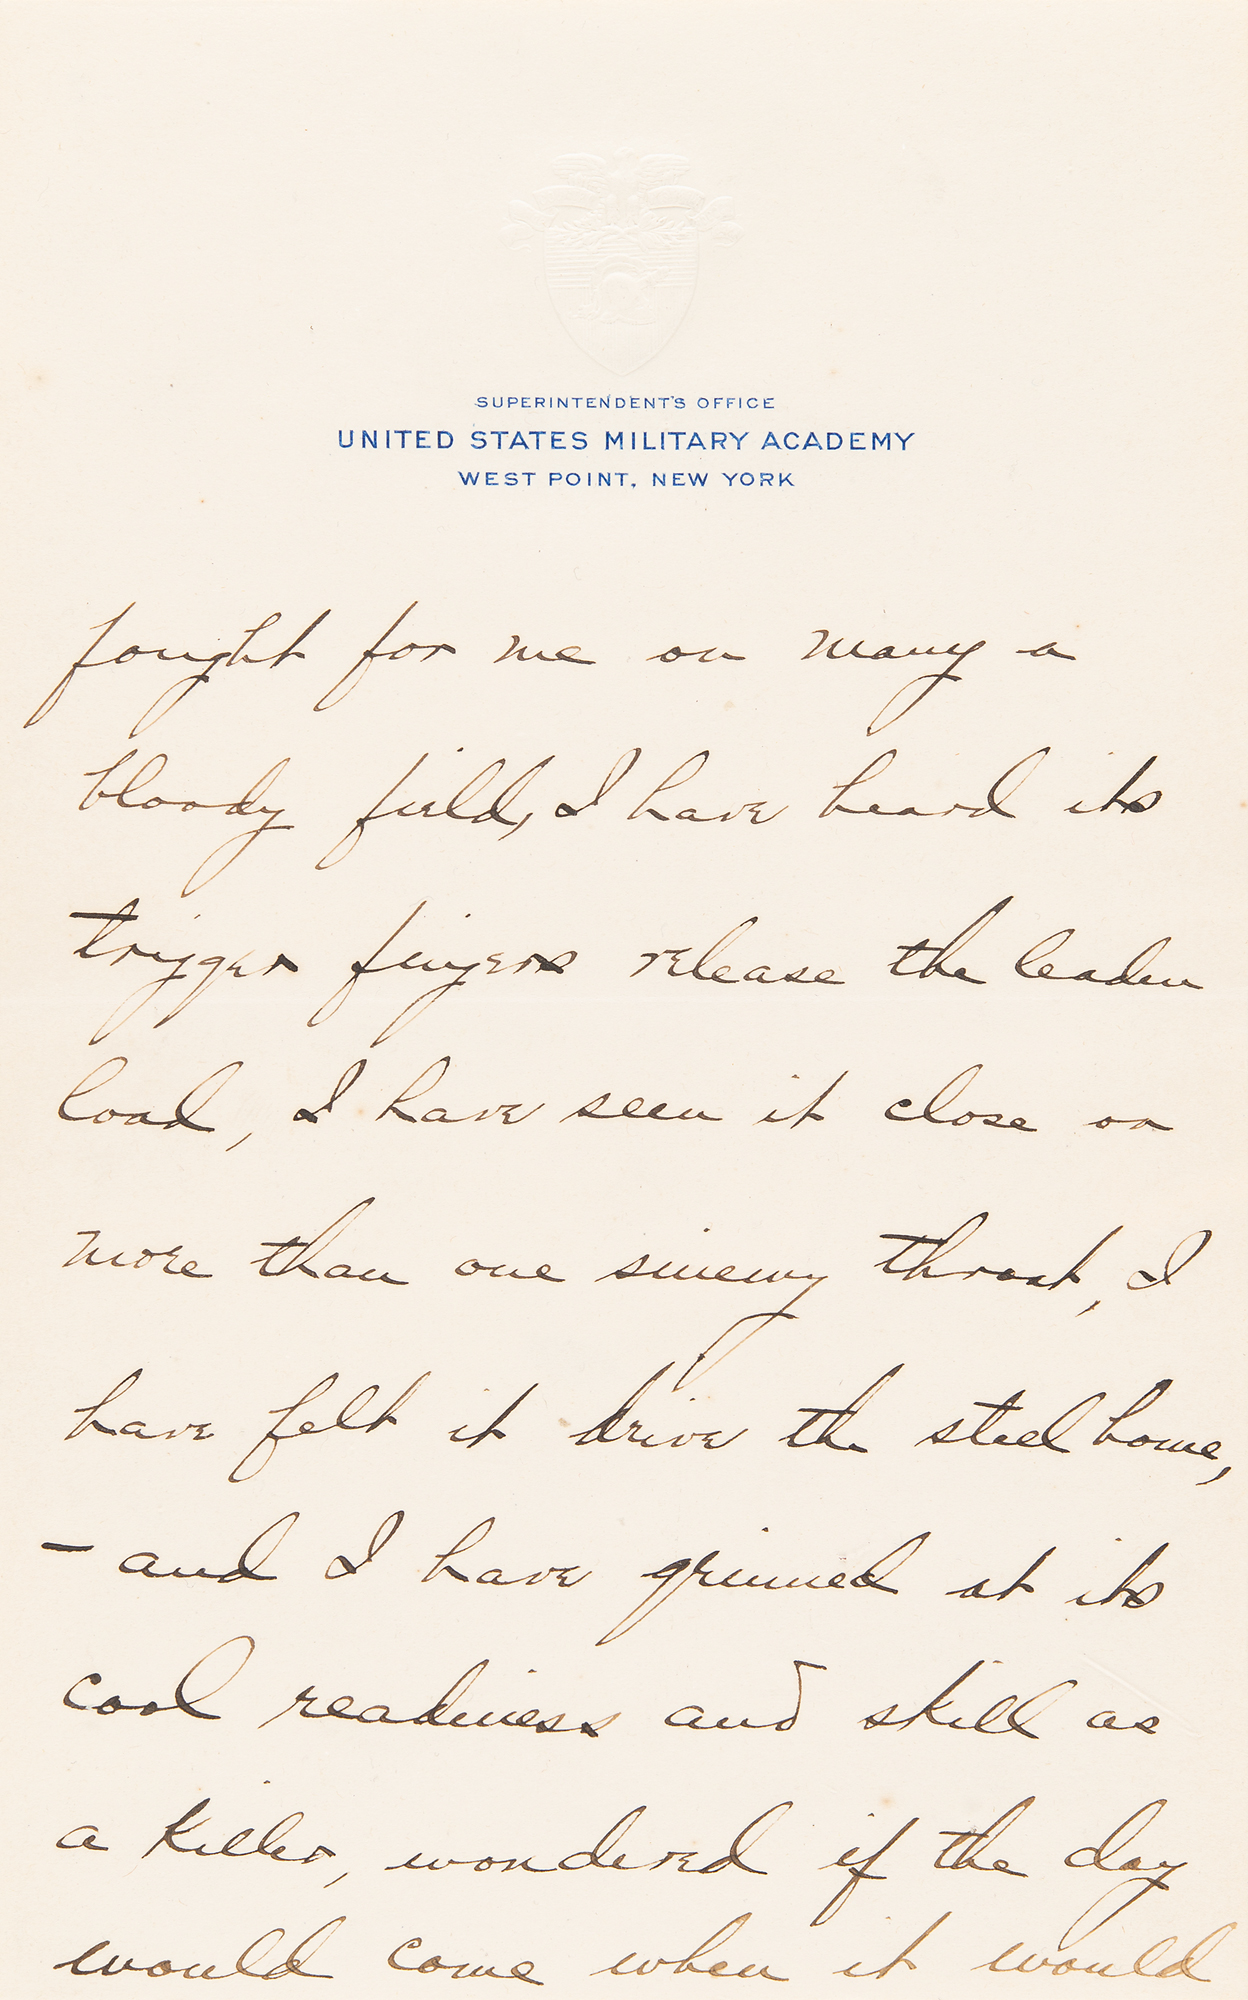 SUPERINTENDENT'S OFFICE
UNITED STATES MILITARY ACADEMY
WEST POINT, NEW YORK
fought for me on many a
bloody field, I have heard its
trigger fingers release the leaden
load, I have seen it close on
more than one sinewy throat, I
have felt it drive the steel home,
- and I have grinned at its
cool readiness and skill as
a killer, wondered if the day
would come when it would